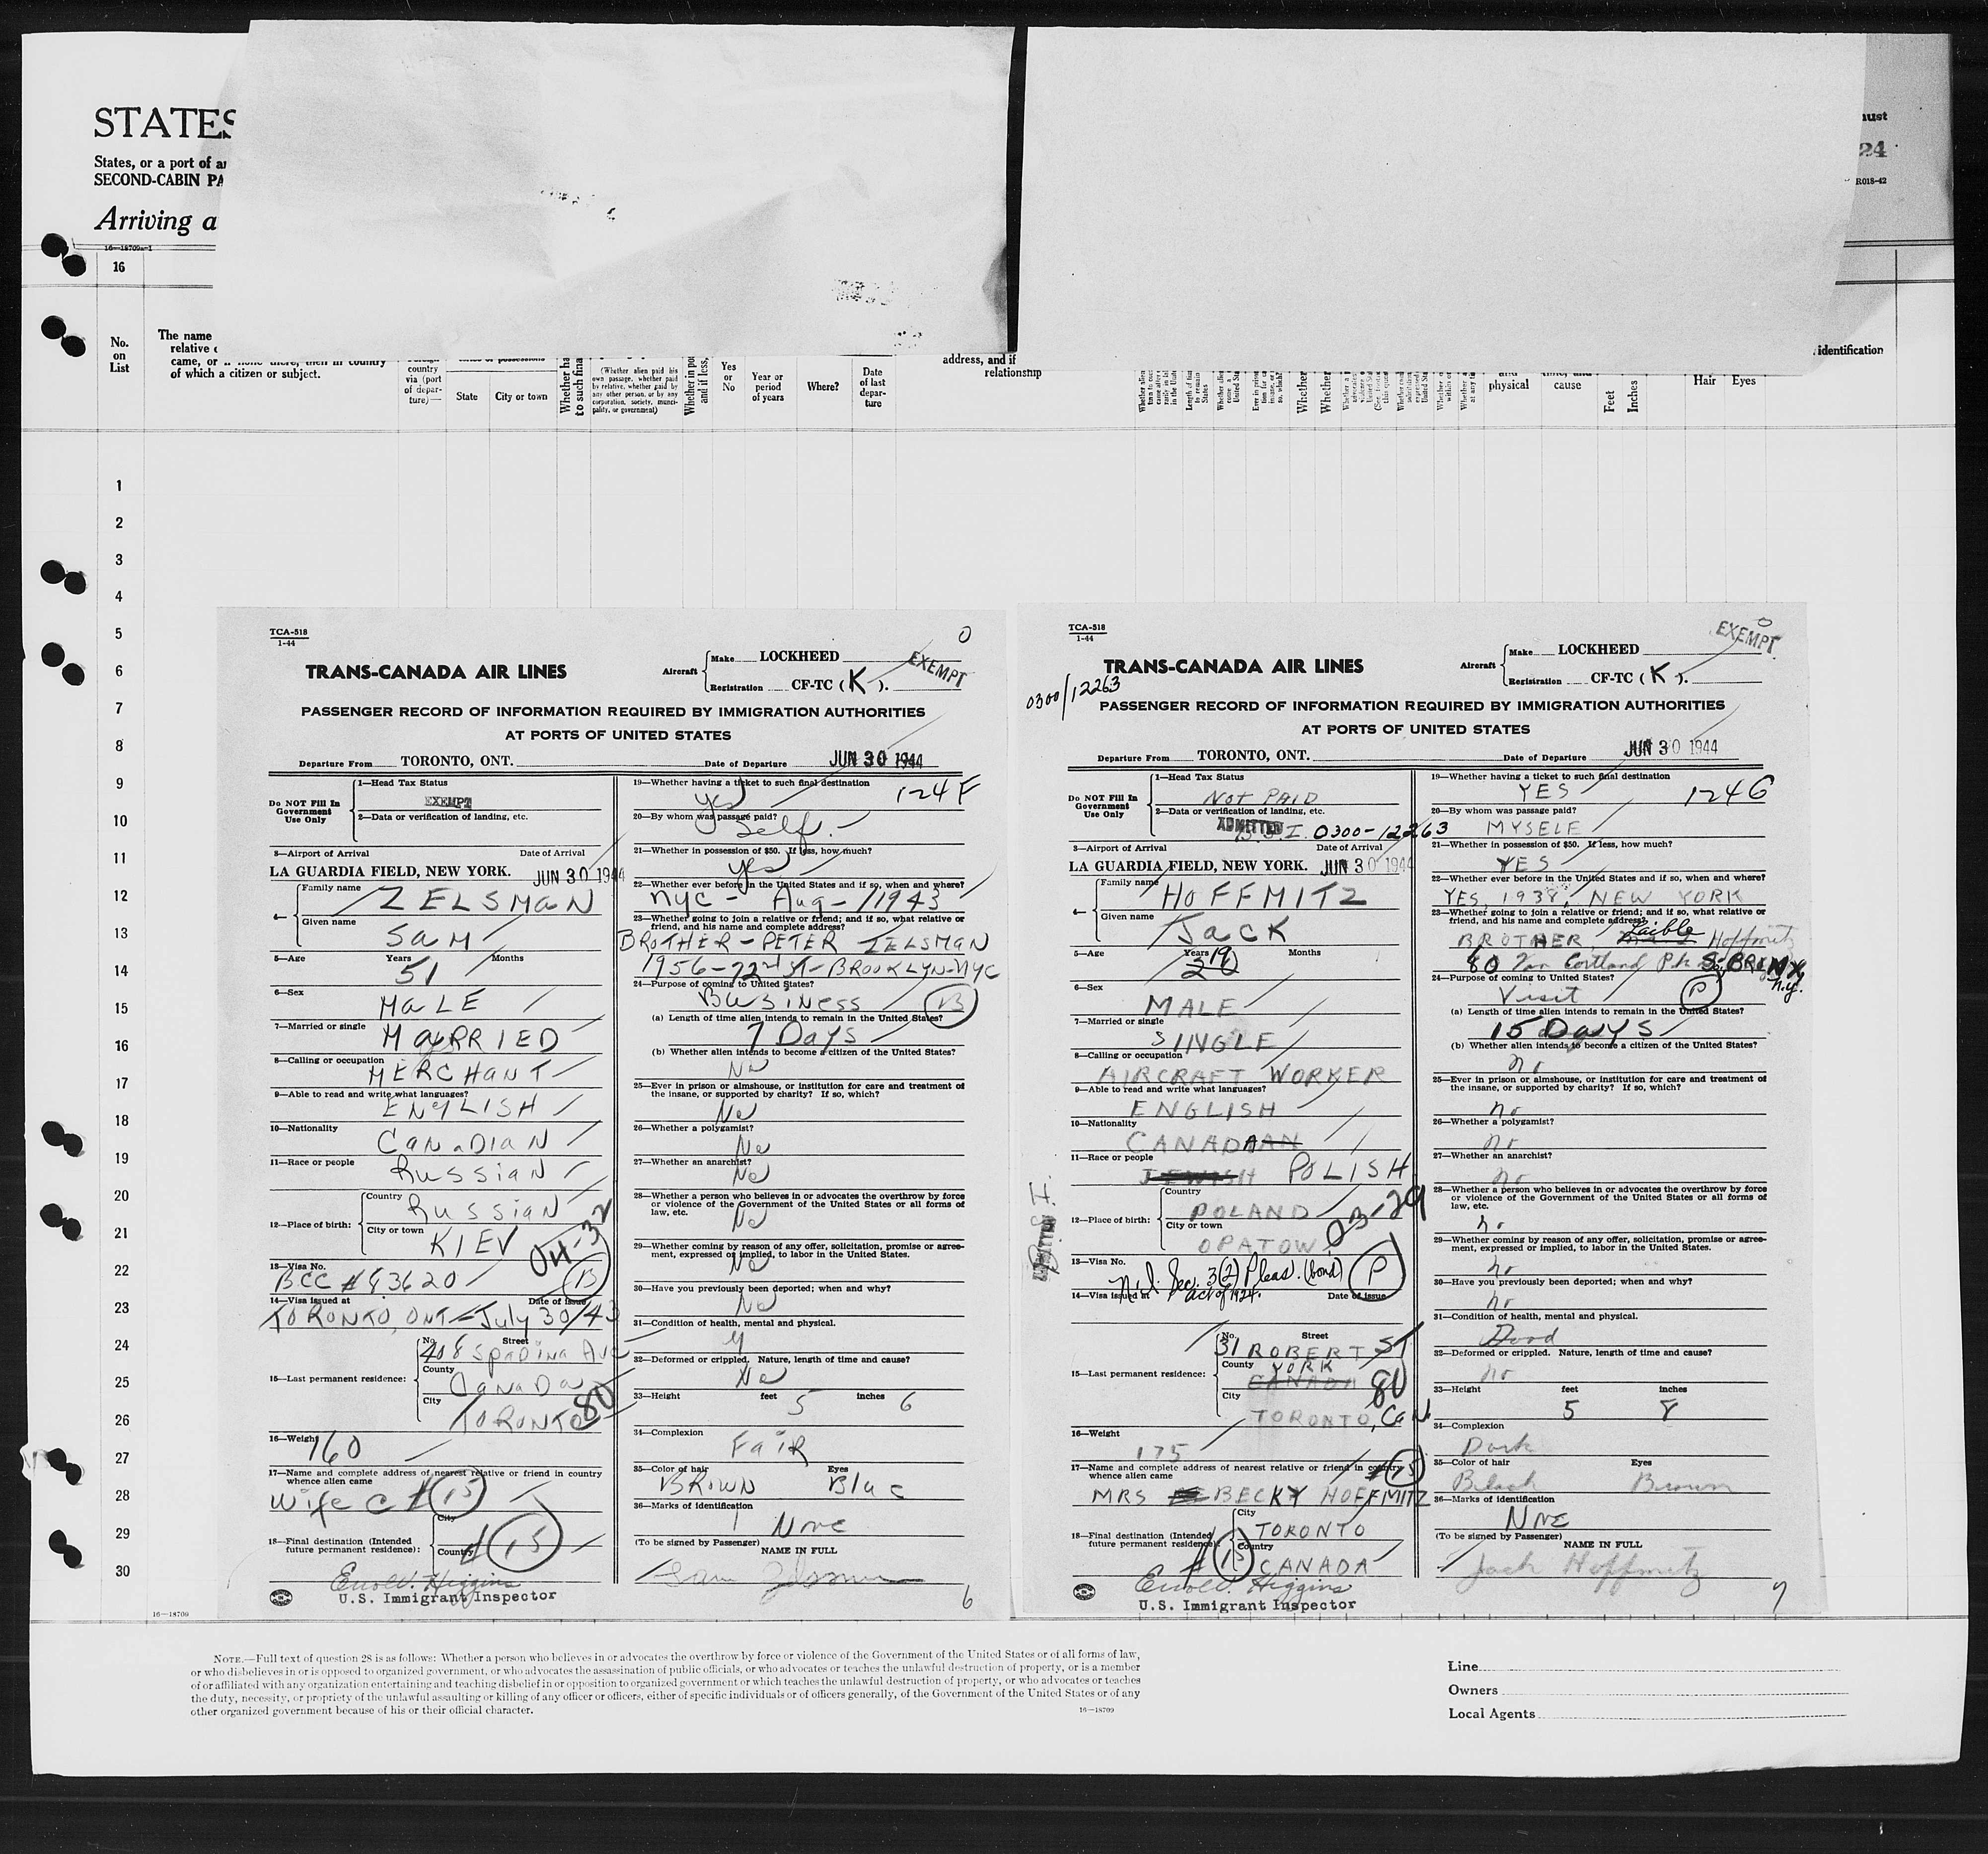 STATES
States, or a port of
SECOND-CABIN
Arriving
16—18709a-1
16
No. on List
The name
relative
came, or if none there, then in country
of which a citizen or subject.
country
via (port
of depar-
ture)—
State
City or town
(Whether alien paid his
own passage, whether paid
by relative, whether paid by
any other person, or by any
corporation, society, munici-
pality, or government)
Yes
or
No
Year or
period
of years
Where?
Date
of last
depar-
ture
address, and if
relationship
physical
cause
Feet
Inches
Hair
Eyes
identification
24
R018-42
1
2
3
4
5
6
7
8
9
10
11
12
13
14
15
16
17
18
19
20
21
22
23
24
25
26
27
28
29
30
16—18709
TCA-518
1-44
0
TRANS-CANADA AIR LINES
Aircraft
Make LOCKHEED
Registration CF-TC ( K ).
EXEMPT
PASSENGER RECORD OF INFORMATION REQUIRED BY IMMIGRATION AUTHORITIES
AT PORTS OF UNITED STATES
Departure From TORONTO, ONT. Date of Departure JUN 30 1944
Do NOT Fill In
Government
Use Only
1—Head Tax Status
EXEMPT
2—Data or verification of landing, etc.
3—Airport of Arrival Date of Arrival
LA GUARDIA FIELD, NEW YORK. JUN 30 1944
4—
Family name
ZELSMaN
Given name
SaM
5—Age Years Months
51
6—Sex
MaLE
7—Married or single
MaRRIED
8—Calling or occupation
MERCHaNT
9—Able to read and write what languages?
ENGLISH
10—Nationality
CaNaDIaN
11—Race or people
RussiaN
12—Place of birth:
Country
RussiaN
City or town
KIEV
04-32
13—Visa No.
BCC #93620
B
14—Visa issued at Date of issue
TORONTO, ONT - July 30/43
15—Last permanent residence:
No. Street
408 SpaDiNa Ave
County
CaNaDa
City
TORONTO
80
16—Weight
160
17—Name and complete address of nearest relative or friend in country
whence alien came
Wife C # 15
18—Final destination (Intended
future permanent residence):
City
Country
# 15
Higgins
U.S. Immigrant Inspector
19—Whether having a ticket to such final destination
yes
124F
20—By whom was passage paid?
Self.
21—Whether in possession of $50. If less, how much?
yes
22—Whether ever before in the United States and if so, when and where?
NYC - Aug - 1943
23—Whether going to join a relative or friend; and if so, what relative or
friend, and his name and complete address?
BROTHER - PETER ZELSMAN
1956-72nd ST - BROOKLYN-NYC
24—Purpose of coming to United States?
BusiNess
B
(a) Length of time alien intends to remain in the United States?
7 Days
(b) Whether alien intends to become a citizen of the United States?
No
25—Ever in prison or almshouse, or institution for care and treatment of
the insane, or supported by charity? If so, which?
No
26—Whether a polygamist?
No
27—Whether an anarchist?
No
28—Whether a person who believes in or advocates the overthrow by force
or violence of the Government of the United States or all forms of
law, etc.
No
29—Whether coming by reason of any offer, solicitation, promise or agree-
ment, expressed or implied, to labor in the United States.
No
30—Have you previously been deported; when and why?
No
31—Condition of health, mental and physical.
32—Deformed or crippled. Nature, length of time and cause?
No
33—Height feet inches
5 6
34—Complexion
FaiR
35—Color of hair Eyes
BROWN Blac
36—Marks of identification
None
(To be signed by Passenger)
NAME IN FULL
6
TCA-518
1-44
0
EXEMPT
TRANS-CANADA AIR LINES
Aircraft
Make LOCKHEED
Registration CF-TC ( K ).
0300/12263
PASSENGER RECORD OF INFORMATION REQUIRED BY IMMIGRATION AUTHORITIES
AT PORTS OF UNITED STATES
Departure From TORONTO, ONT. Date of Departure JUN 30 1944
Do NOT Fill In
Government
Use Only
1—Head Tax Status
Not PAID
2—Data or verification of landing, etc.
ADMITTED
B.S.I. 0300-12263
3—Airport of Arrival Date of Arrival
LA GUARDIA FIELD, NEW YORK. JUN 30 1944
4—
Family name
HOFFMITZ
Given name
JaCK
5—Age Years Months
19
6—Sex
MALE
7—Married or single
SINGLE
8—Calling or occupation
AIRCRAFT WORKER
9—Able to read and write what languages?
ENGLISH
10—Nationality
CANADA
11—Race or people
JEWISH POLISH
12—Place of birth:
Country
POLAND
City or town
OPATOW
03-29
13—Visa No.
N.I. Sec. 3(2) Pleas. (bond)
P
14—Visa issued at Date of issue
Act of 1924.
15—Last permanent residence:
No. Street
31 ROBERT ST
County
YORK
CANADA
80
City
TORONTO, CaN
16—Weight
175
17—Name and complete address of nearest relative or friend in country
whence alien came
# 15
MRS BECKY HOFFMITZ
18—Final destination (Intended
future permanent residence):
City
TORONTO
Country
# 15 CANADA
Higgins
U.S. Immigrant Inspector
19—Whether having a ticket to such final destination
YES
124G
20—By whom was passage paid?
MYSELF
21—Whether in possession of $50. If less, how much?
YES
22—Whether ever before in the United States and if so, when and where?
YES, 1938, NEW YORK
23—Whether going to join a relative or friend; and if so, what relative or
friend, and his name and complete address?
BROTHER, Laible Hoffmitz
80 Van Cortland Pk S. BRONX
N.Y.
24—Purpose of coming to United States?
Visit
P
(a) Length of time alien intends to remain in the United States?
15 Days
(b) Whether alien intends to become a citizen of the United States?
no
25—Ever in prison or almshouse, or institution for care and treatment of
the insane, or supported by charity? If so, which?
no
26—Whether a polygamist?
no
27—Whether an anarchist?
no
28—Whether a person who believes in or advocates the overthrow by force
or violence of the Government of the United States or all forms of
law, etc.
no
29—Whether coming by reason of any offer, solicitation, promise or agree-
ment, expressed or implied, to labor in the United States.
no
30—Have you previously been deported; when and why?
no
31—Condition of health, mental and physical.
Good
32—Deformed or crippled. Nature, length of time and cause?
no
33—Height feet inches
5 8
34—Complexion
Dark
35—Color of hair Eyes
Black Brown
36—Marks of identification
None
(To be signed by Passenger)
NAME IN FULL
Jack Hoffmitz
7
NOTE.—Full text of question 28 is as follows: Whether a person who believes in or advocates the overthrow by force or violence of the Government of the United States or of all forms of law,
or who disbelieves in or is opposed to organized government, or who advocates the assassination of public officials, or who advocates or teaches the unlawful destruction of property, or is a member
of or affiliated with any organization entertaining and teaching disbelief in or opposition to organized government or which teaches the unlawful destruction of property, or who advocates or teaches
the duty, necessity, or propriety of the unlawful assaulting or killing of any officer or officers, either of specific individuals or of officers generally, of the Government of the United States or of any
other organized government because of his or their official character.
16—18709
Line
Owners
Local Agents